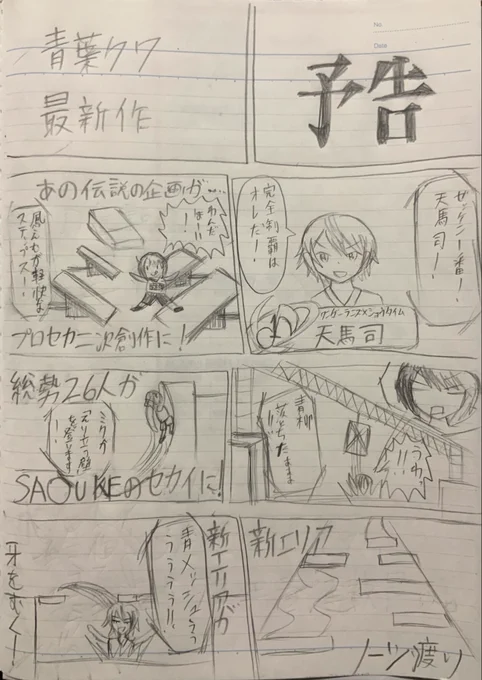 No.
Date
予告
青葉クワ
最新作
ゼッケン一番!
天馬司!
完全制覇は
オレだー!
ワンダーランズ×ショウタイム
天馬司
あの伝説の企画が…
わんだ
ほーい
!
風よりも軽快な
ステップスー!
プロセカ二次創作に!
うわっ
!!
青柳
落ちたー
!!
総勢26人が
ミクが
そり立つ壁
を登ります
!
SAOUKEのセカイに!
新エリア
ノーツ渡り
新エリアが
青メッシュぅぅ
うううう!!
牙をむく!